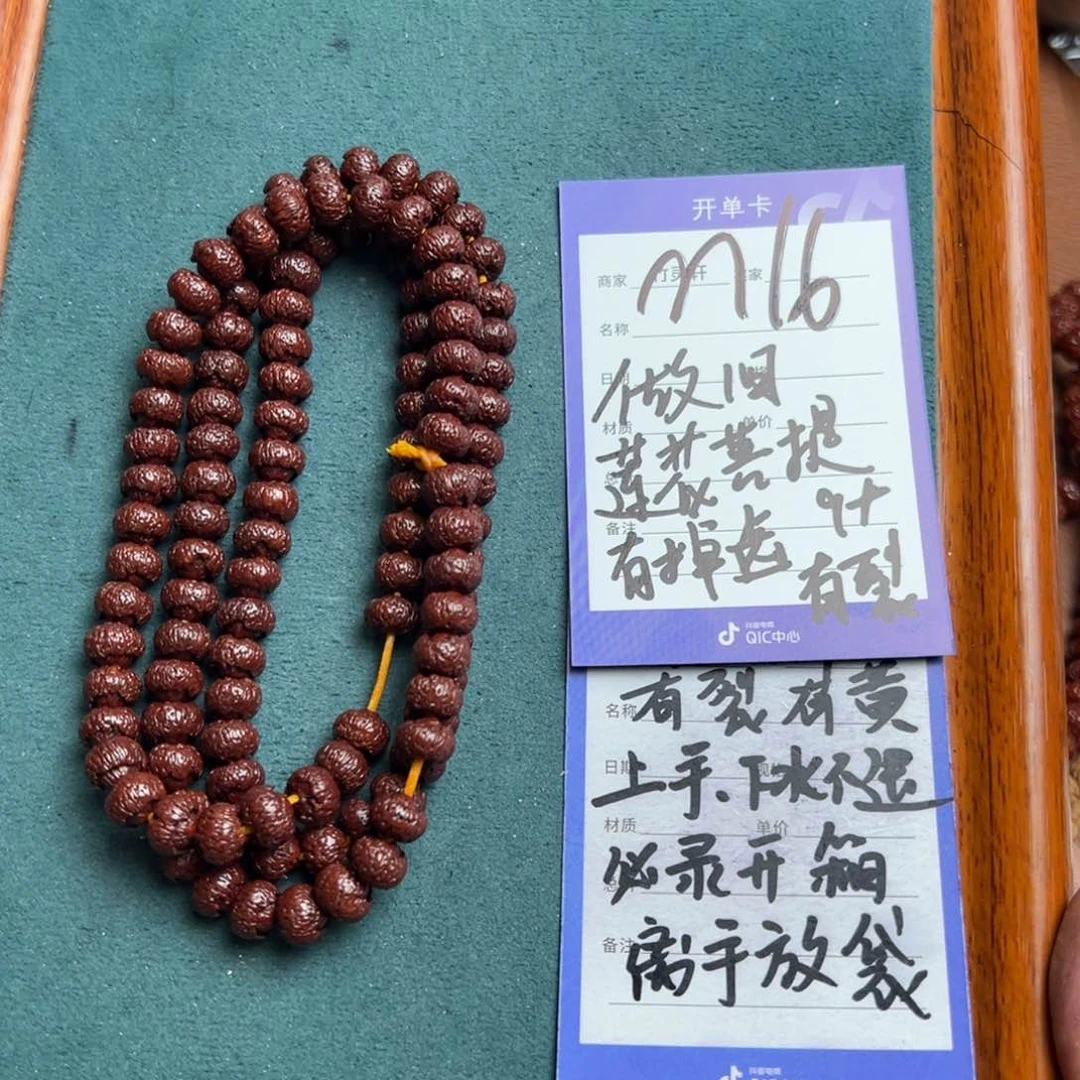 开单卡
商家 竹灵轩
M16
名称
做旧
日期
材质 单价
莲花菩提
9十
备注
有掉齿 有裂
抖音电商
QIC中心
名称
有裂有黄
日期
上手、下水不退
材质 单价
必录开箱
备注
离手放袋
抖音电商